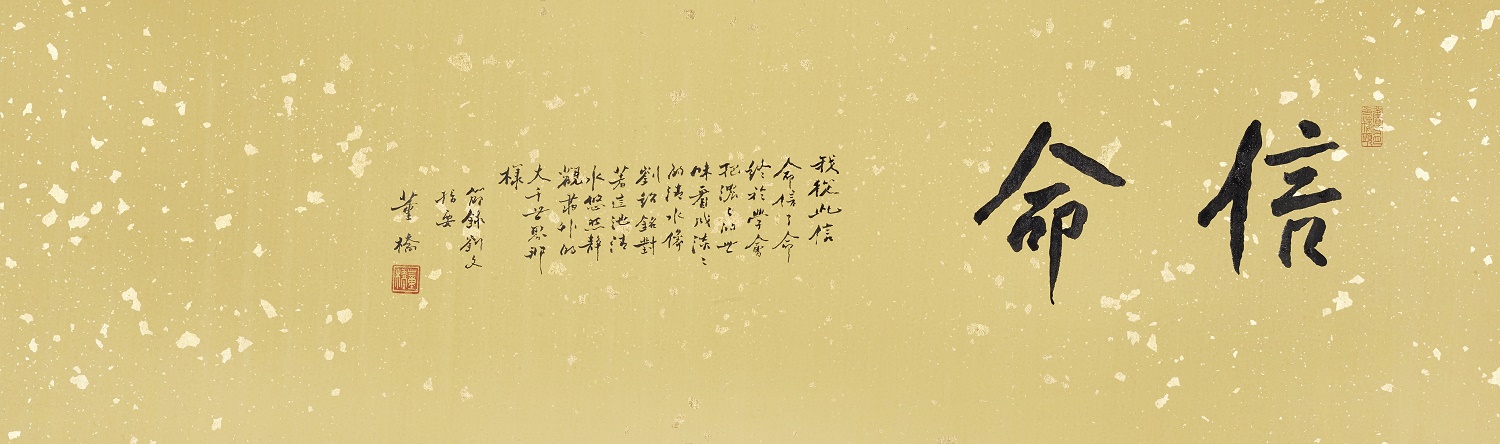 信命
我從此信
命信了命
終於學會
把濃〻的世
味看成淡〻
的清水像
劉紹銘對
著這池清
水悠然靜
觀外的
大千世界那
樣
節錄劉文
指要
董橋
董橋